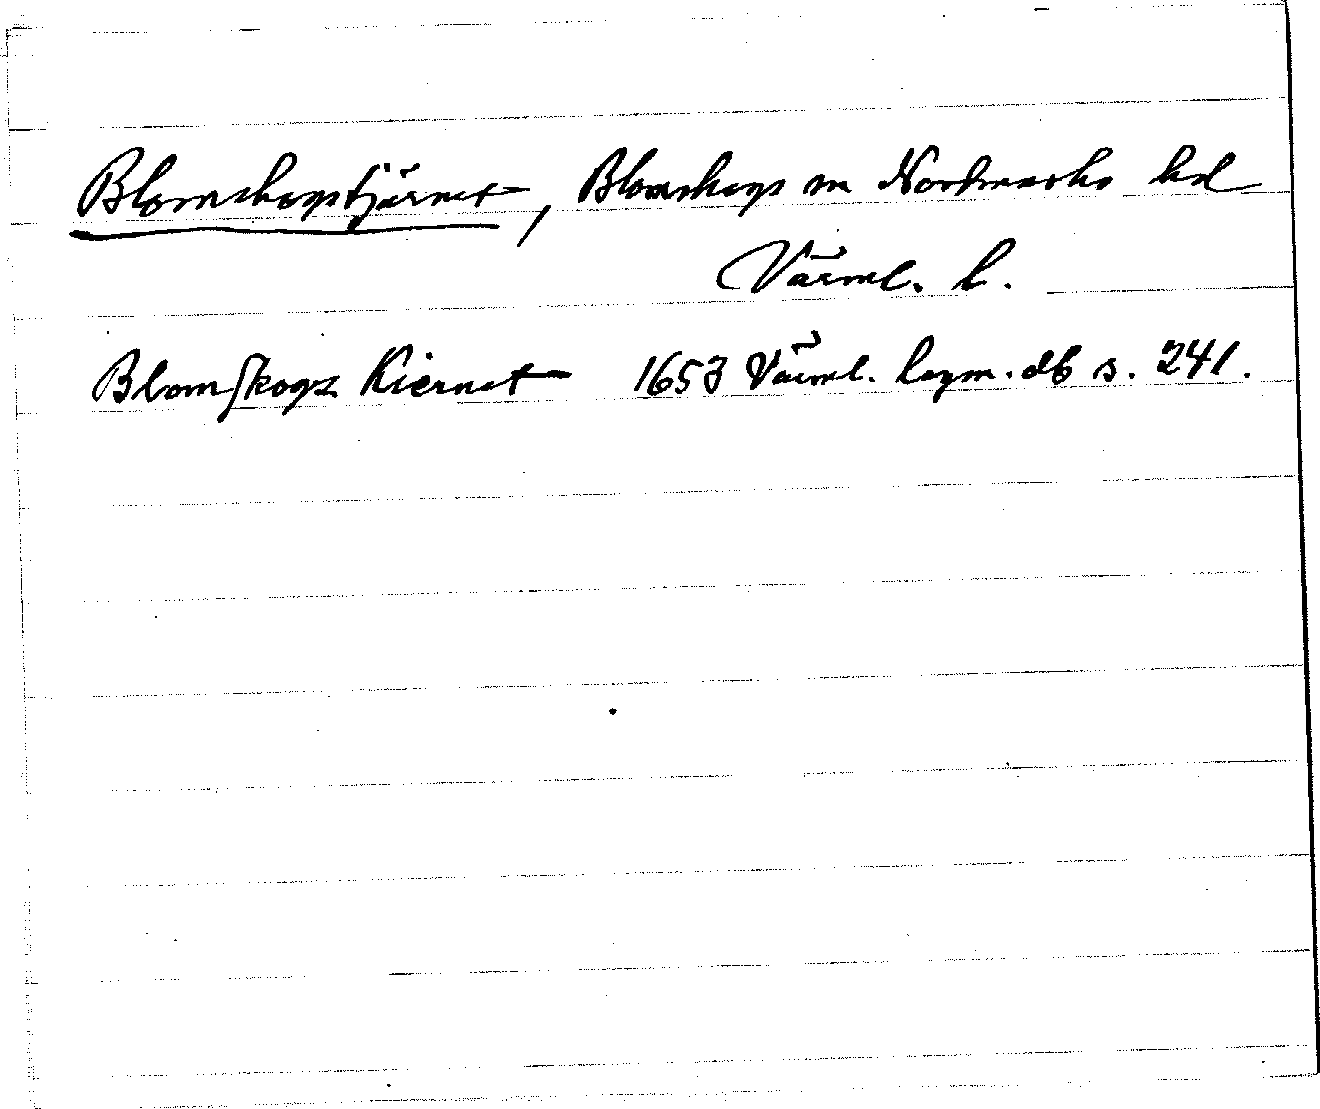 Blomskogstjärnet, Blomskogs sn Nordmarks hd
Värml. l.
Blomſkogz Kiernet 1653 Värml. lagm. db s. 241.